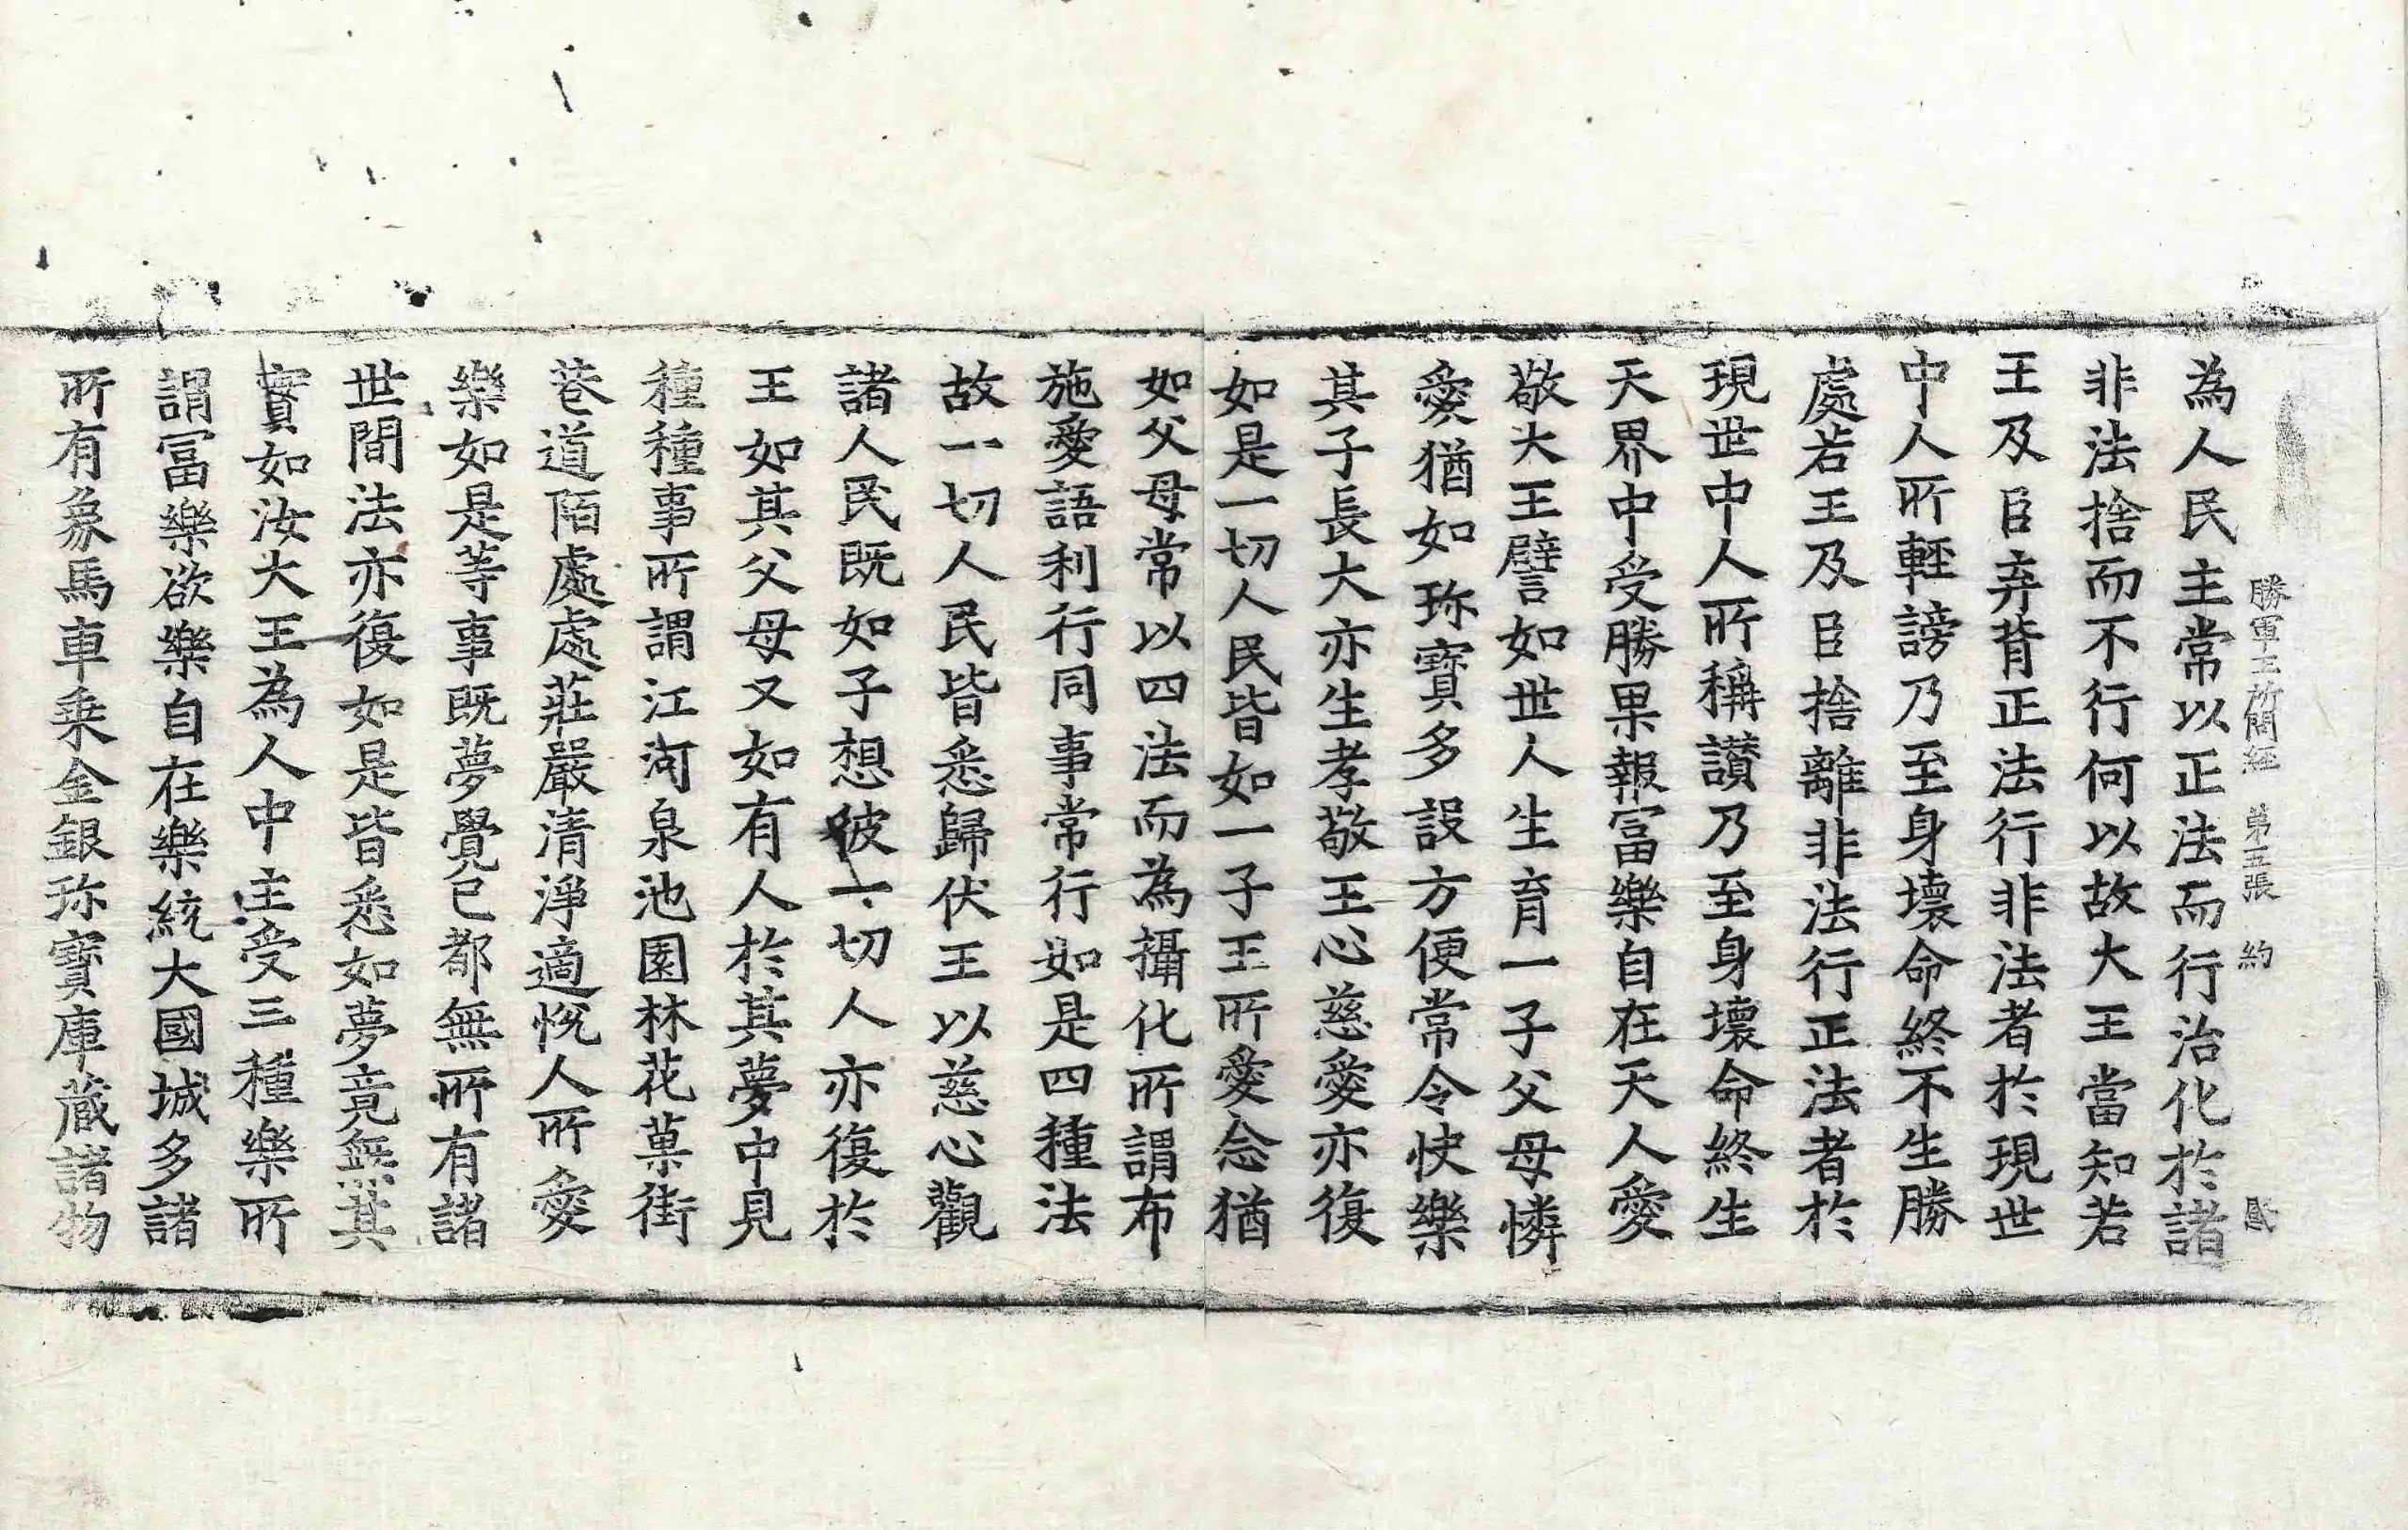 勝軍王所問經 第五張 約
為人民主常以正法而行治化於諸
非法捨而不行何以故大王當知若
王及臣弃背正法行非法者於現世
中人所輕謗乃至身壞命終不生勝
處若王及臣捨離非法行正法者於
現世中人所稱讃乃至身壞命終生
天界中受勝果報冨樂自在天人愛
敬大王譬如世人生育一子父母憐
愛猶如珎寶多設方便常令快樂
其子長大亦生孝敬王心慈愛亦復
如是一切人民皆如一子王所愛念猶
如父母常以四法而為攝化所謂布
施愛語利行同事常行如是四種法
故一切人民皆悉歸伏王以慈心觀
諸人民既如子想彼一切人亦復於
王如其父母又如有人於其夢中見
種種事所謂江河泉池園林花菓街
巷道陌處處莊嚴清淨適悅人所愛
樂如是等事既夢覺已都無所有諸
世間法亦復如是皆悉如夢竟無其
實如汝大王為人中主受三種樂所
謂冨樂欲樂自在樂統大國城多諸
所有象馬車乗金銀珎寶庫藏諸物